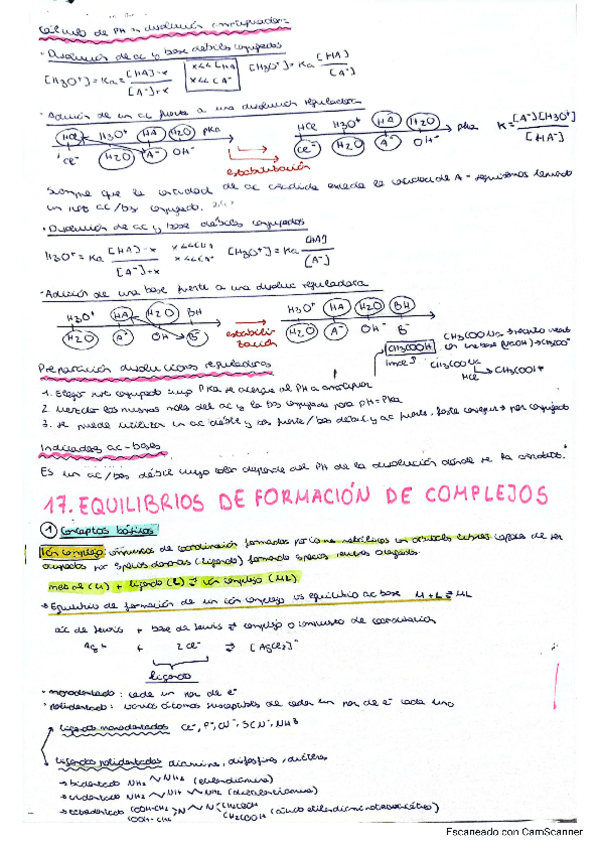 Cálculo de PH en disolución amortiguadora:
· Disolución de ac y base débiles conjugados
[H3O+] = Ka = [HA]-x / [A-]+x   x<<HA x<<A-   [H3O+] = Ka [HA] / [A-]
· Adición de un ac fuerte a una disolución reguladora
HCl H3O+ HA H2O pKa   HCl H3O+ HA H2O pKa   K = [A-][H3O+] / [HA-]
Cl- H2O A- OH-   Cl- H2O A- OH-
estabilización
Siempre que la cantidad de ac añadida la cantidad de A- seguiremos teniendo
un par ac/bas conjugado.
· Disolución de ac y base débiles conjugados
H3O+ = Ka [HA]-x / [A-]+x   x<<HA x<<A-   [H3O+] = Ka [HA] / [A-]
· Adición de una base fuerte a una disoluc reguladora
H3O+ HA H2O BH   H3O+ HA H2O BH
H2O A- OH- B-   estabilización   H2O A- OH- B-
CH3COOH
Preparación disoluciones reguladoras
1. Elegir par conjugado cuyo PKa se acerque al PH a amortiguar
2. Mezclar los mismos moles del ac y la bas conjugada para pH=PKa
3. Se puede utilizar un ac débil y bas fuerte/bas débil y ac fuerte, hasta conseguir par conjugado
Indicadores ac-bases
Es un ac/bas débil cuyo color depende del PH de la disolución donde se ha
17. EQUILIBRIOS DE FORMACIÓN DE COMPLEJOS
1 Conceptos básicos
Ión complejo compuestos de coordinación formados por metálicos con orbitales capaces de ser
ocupados por especies donoras (ligando) formando especies
metal (M) + ligando (L) ⇌ ión complejo (ML)
→ Equilibrio de formación de un ión complejo vs equilibrio ac base M+L ⇌ ML
ac de lewis + base de lewis ⇌ complejo o compuesto de coordinación
Ag+ + 2Cl- ⇌ [AgCl2]-
ligando
· monodentado: cede un par de e-
· polidentado: varios átomos susceptibles de ceder un par de e- cada uno
ligandos monodentados Cl-, F-, CN-, SCN-, NH3
ligandos polidentados diamina, difosfina, diéteres
→ bidentado NH2 NH2 (etilendiamina)
→ tridentado NH2 NH NH2 (dietilentriamina)
→ hexadentado COOH-CH2 COOH-CH2 N N CH2COOH CH2COOH (ácido etilendiaminotetraacético)
Escaneado con CamScanner